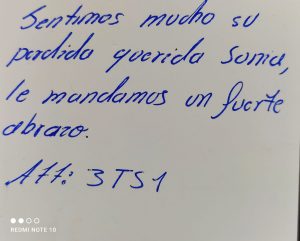 Sentimos mucho su
perdida querida Sonia,
le mandamos un fuerte
abrazo.
Att: 3TS1
REDMI NOTE 10